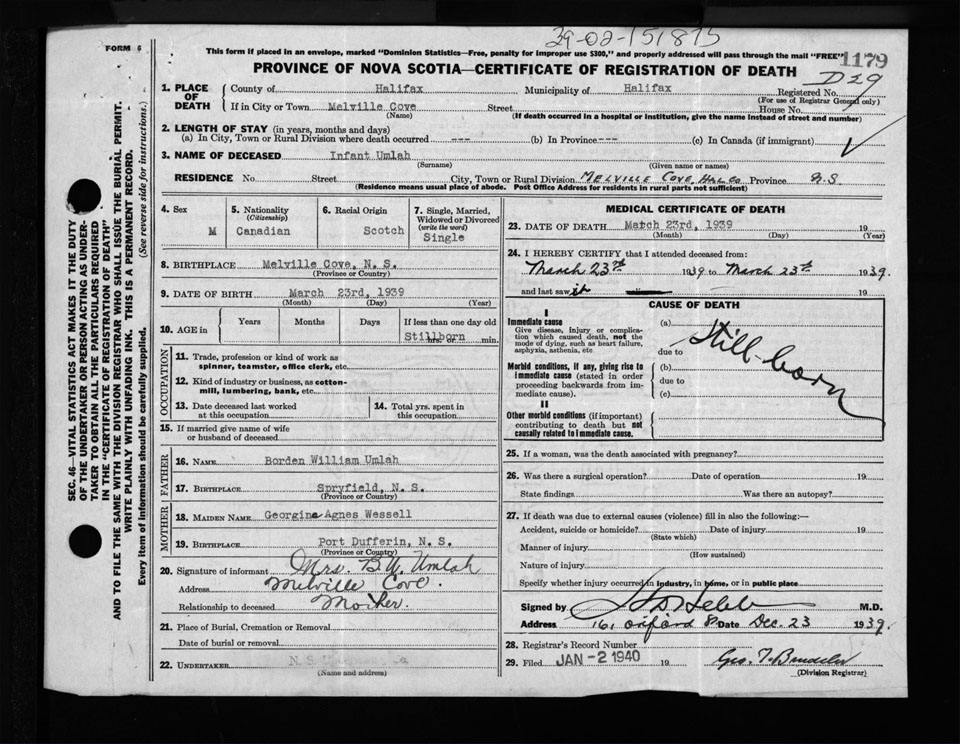 39-02-151875
FORM 6
This form if placed in an envelope, marked "Dominion Statistics—Free, penalty for improper use $300," and properly addressed will pass through the mail "FREE"
1179
PROVINCE OF NOVA SCOTIA—CERTIFICATE OF REGISTRATION OF DEATH
D29
1. PLACE OF DEATH
County of Halifax Municipality of Halifax Registered No.
(For use of Registrar General only)
If in City or Town Melville Cove Street House No.
(Name) (If death occurred in a hospital or institution, give the name instead of street and number)
2. LENGTH OF STAY (in years, months and days)
(a) In City, Town or Rural Division where death occurred --- (b) In Province --- (c) In Canada (if immigrant)
3. NAME OF DECEASED Infant Umlah
(Surname) (Given name or names)
RESIDENCE No. Street City, Town or Rural Division MELVILLE COVE, HAL CO Province N.S.
(Residence means usual place of abode. Post Office Address for residents in rural parts not sufficient)
4. Sex M
5. Nationality (Citizenship) Canadian
6. Racial Origin Scotch
7. Single, Married, Widowed or Divorced (write the word) Single
8. BIRTHPLACE Melville Cove, N. S.
(Province or Country)
9. DATE OF BIRTH March 23rd, 1939
(Month) (Day) (Year)
10. AGE in Years Months Days If less than one day old
Stillborn hrs. or min.
OCCUPATION
11. Trade, profession or kind of work as spinner, teamster, office clerk, etc.
12. Kind of industry or business, as cotton-mill, lumbering, bank, etc.
13. Date deceased last worked at this occupation
14. Total yrs. spent in this occupation
15. If married give name of wife or husband of deceased
FATHER
16. NAME Borden William Umlah
17. BIRTHPLACE Spryfield, N. S.
(Province or Country)
MOTHER
18. MAIDEN NAME Georgina Agnes Wessell
19. BIRTHPLACE Port Dufferin, N. S.
(Province or Country)
20. Signature of informant Mrs. B W Umlah
Address Melville Cove.
Relationship to deceased Mother.
21. Place of Burial, Cremation or Removal
Date of burial or removal
22. UNDERTAKER N. S. Co
(Name and address)
MEDICAL CERTIFICATE OF DEATH
23. DATE OF DEATH March 23rd, 1939 19
(Month) (Day) (Year)
24. I HEREBY CERTIFY that I attended deceased from:
March 23rd 1939 to March 23th 1939.
and last saw it alive on 19
CAUSE OF DEATH
I
Immediate cause
Give disease, injury or complication which caused death, not the mode of dying, such as heart failure, asphyxia, asthenia, etc
(a) Still-born
due to
Morbid conditions, if any, giving rise to immediate cause (stated in order proceeding backwards from immediate cause).
(b)
due to
(c)
II
Other morbid conditions (if important) contributing to death but not causally related to immediate cause.
25. If a woman, was the death associated with pregnancy?
26. Was there a surgical operation? Date of operation 19
State findings Was there an autopsy?
27. If death was due to external causes (violence) fill in also the following:—
Accident, suicide or homicide? Date of injury 19
(State which)
Manner of injury
(How sustained)
Nature of injury
Specify whether injury occurred in industry, in home, or in public place
Signed by M.D.
Address 161 Oxford St Date Dec. 23 1939.
28. Registrar's Record Number
29. Filed JAN -2 1940 19
Geo. T.
(Division Registrar)
SEC. 46—VITAL STATISTICS ACT MAKES IT THE DUTY
OF THE UNDERTAKER OR PERSON ACTING AS UNDER-
TAKER TO OBTAIN ALL THE PARTICULARS REQUIRED
IN THE "CERTIFICATE OF REGISTRATION OF DEATH"
AND TO FILE THE SAME WITH THE DIVISION REGISTRAR WHO SHALL ISSUE THE BURIAL PERMIT.
WRITE PLAINLY WITH UNFADING INK. THIS IS A PERMANENT RECORD.
Every item of information should be carefully supplied. (See reverse side for instructions.)